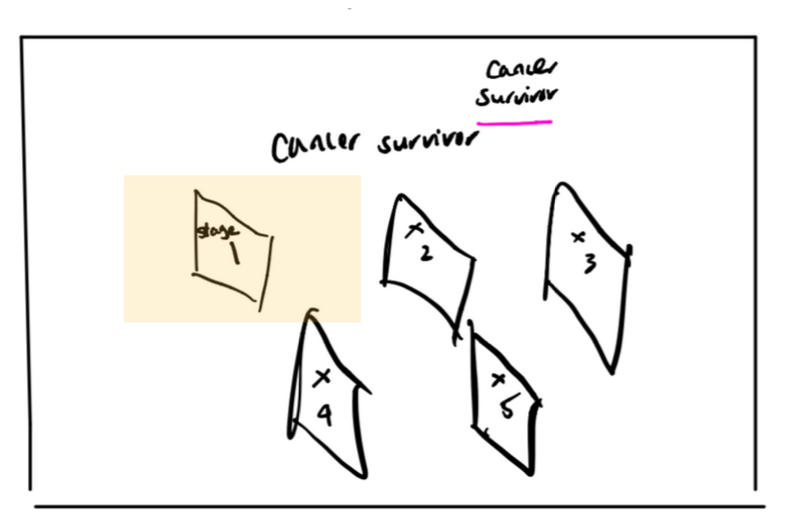 Cancer
Survivor
Cancer survivor
stage
1
x
2
x
3
x
4
x
5